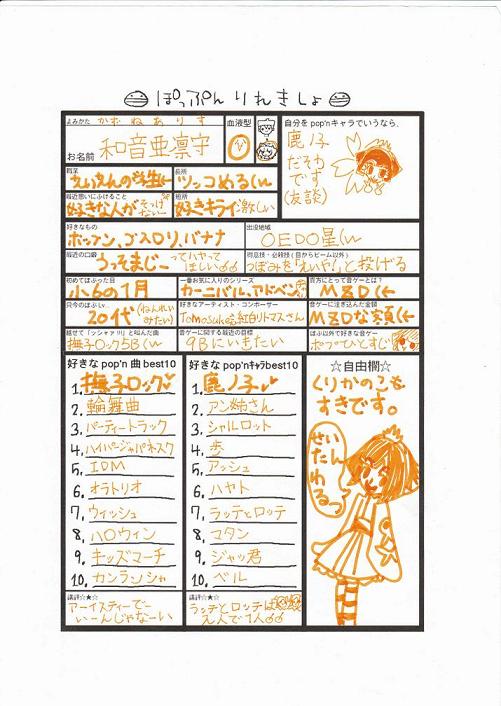 ぽっぷん りれきしょ
よみかた かずねありす
お名前 和音亜凛守
血液型
O
自分をpop'nキャラでいうなら、
鹿ノ子
だそわ
です
(友談)
職業
えいえんの学生
長所
ツッコめる(い
最近思いにふけること
好きな人が
短所
好きキライ激しい
好きなもの
ポップン、ゴスロリ、バナナ
出没地域
OEDO星(い
最近の口癖
うっそまじー
ってハヤって
ほしい
得意技・必殺技(目からビーム以外)
つぼみを「えいや!」と投げる
初めてぽっぷった日
小6の1月
一番お気に入りのシリーズ
カーニバル、アドベン
貴方にとって音ゲーとは?
MZD(い
只今のぽっぷLv.
20代(ねんれい
みたい)
好きなアーティスト・コンポーザー
Tomosuke 紅白リトマスさん
音ゲーに注ぎ込んだ金額
MZDな実額(い
越せて「ッシャァ!!!」と叫んだ曲
撫子ロック5B(い
音ゲーに関する最近の目標
9Bにいきたい
ぽっぷ以外で好きな音ゲー
好きなpop'n 曲 best10
1. 撫子ロック
2. 輪舞曲
3. パーティートラック
4. ハイパージャパネスク
5. IDM
6. オラトリオ
7. ウィッシュ
8. ハロウィン
9. キッズマーチ
10. カンランシャ
講評☆★☆
アーイスティーでー
いーんじゃなーい
好きなpop'nキャラbest10
1. 鹿ノ子
2. アン姉さん
3. シャルロット
4. 歩
5. アッシュ
6. ハヤト
7. ラッテとロッテ
8. マタン
9. ジャッ君
10. ベル
講評☆★☆
ラッテとロッテは
2人で1人
☆自由欄☆
くりかのこも
すきです。
せいたん
わるっ